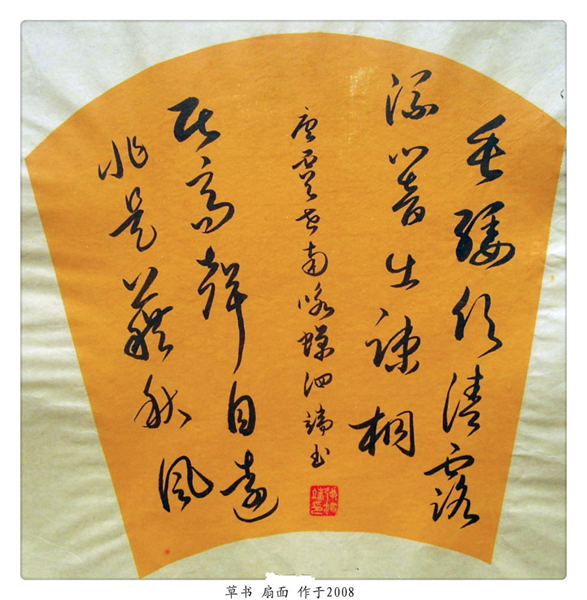 垂緌飲清露
流響出疎桐
唐虞世南咏蟬泗端书
居高聲自遠
非是藉秋風
草书 扇面 作于2008